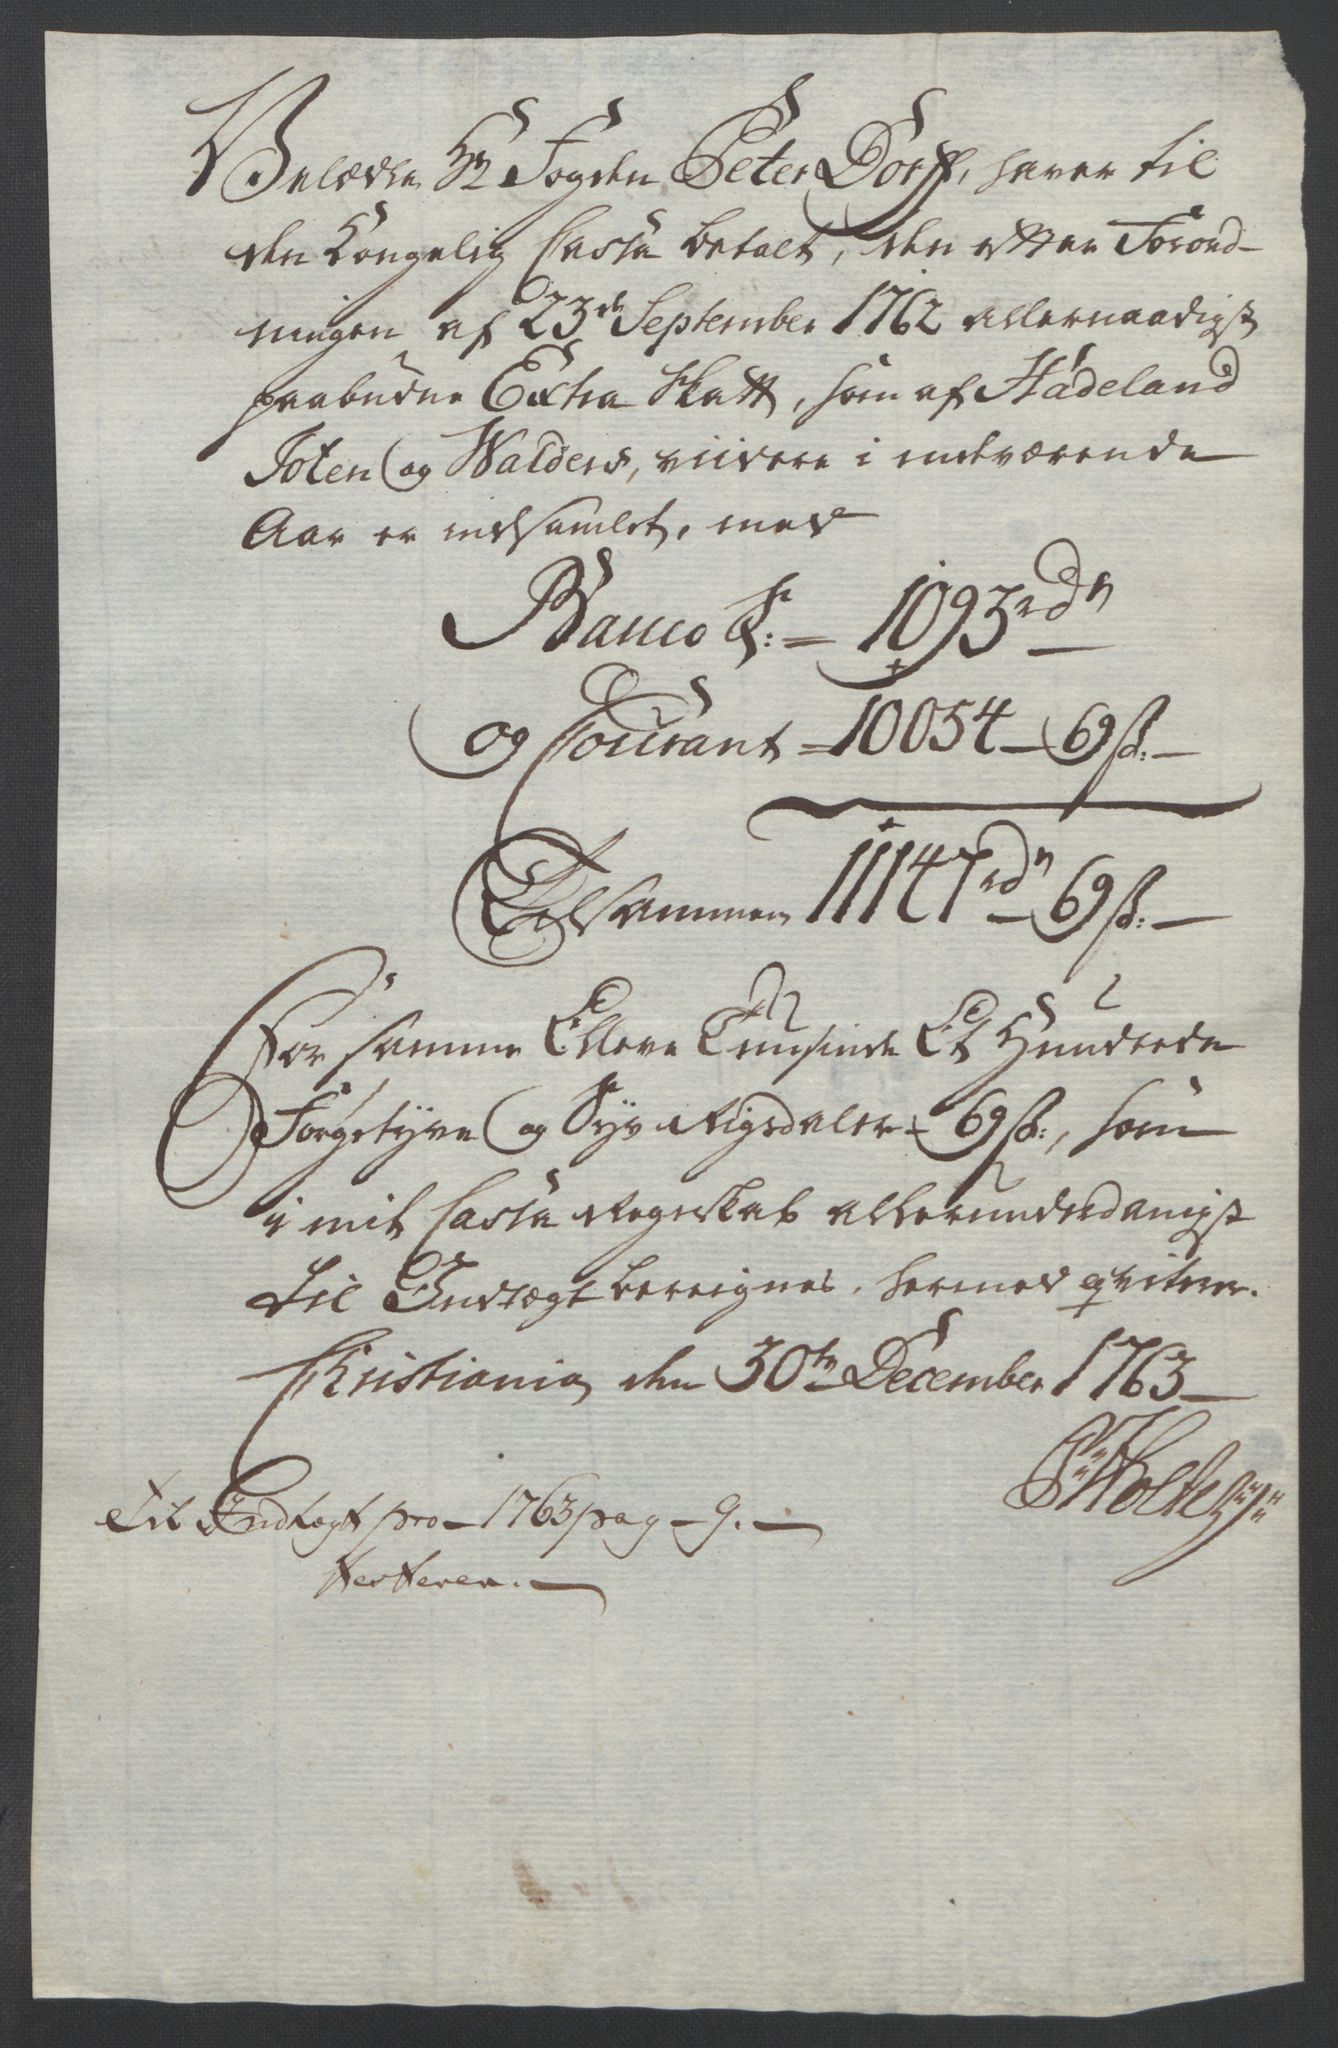 Velædle Hr Fogden Peter Dorff, haver til
den Kongelig Cassa betalt, den efter Forord-
ningen af 23de September 1762 allernaadigst
paabudne Extra Skatt, som af Hadeland
Toten og Walders, viidere i indeværende
Aar er indsamlet, med
Banco S: = 1093rdr
og Courant = 10054 - 69ß: -
Tilsammen 11147rdr 69ß: -
For samme Elleve Tuusinde Et Hundrede
Førgetyve og Syv Rigsdaler - 69ß:, som
i mit Cassa Regnskab allerunderdanigst
til Indtægt bereignes, hermed qviterer.
Christiania den 30te December 1763
P: Holte
Til Indtægt pro - 1763 pag - 9. -
testerer. -